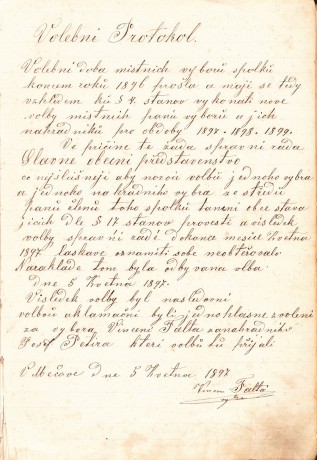 Volebni Protokol.
Volebni doba mistnich vyborů spolků
koncem roků 1896 prošla a maji se tedy
vzhledem ku § 4. stanov vykonati nove
volby mistnich panů vyborů a jich
nahradniků pro obdoby 1897-1898-1899.
Ve přičine te žada spravni rada
Slavne obecni představenstvo
co nejslušněji aby novou volbů jednoho vybra
a jednoho nahradnika vybra ze středu
panů členů toho spolků tamni obce stava
jicich dle § 17 stanov provesti a vysledek
volby spravni radě do konce mesice Května
1897 laskave oznamiti sobe neobtěžovalo
Na zaklade tom byla odbyvana volba
dne 5 Května 1897.
Visledek volby byl nasledovni
volbou aklamačni byli jednohlasne zvoleni
za vybora Vincenc Falta za nahradnika
Josef Petira kteři volbů tu přijali
V Mečově dne 5 Května 1897
Vincenc Falta